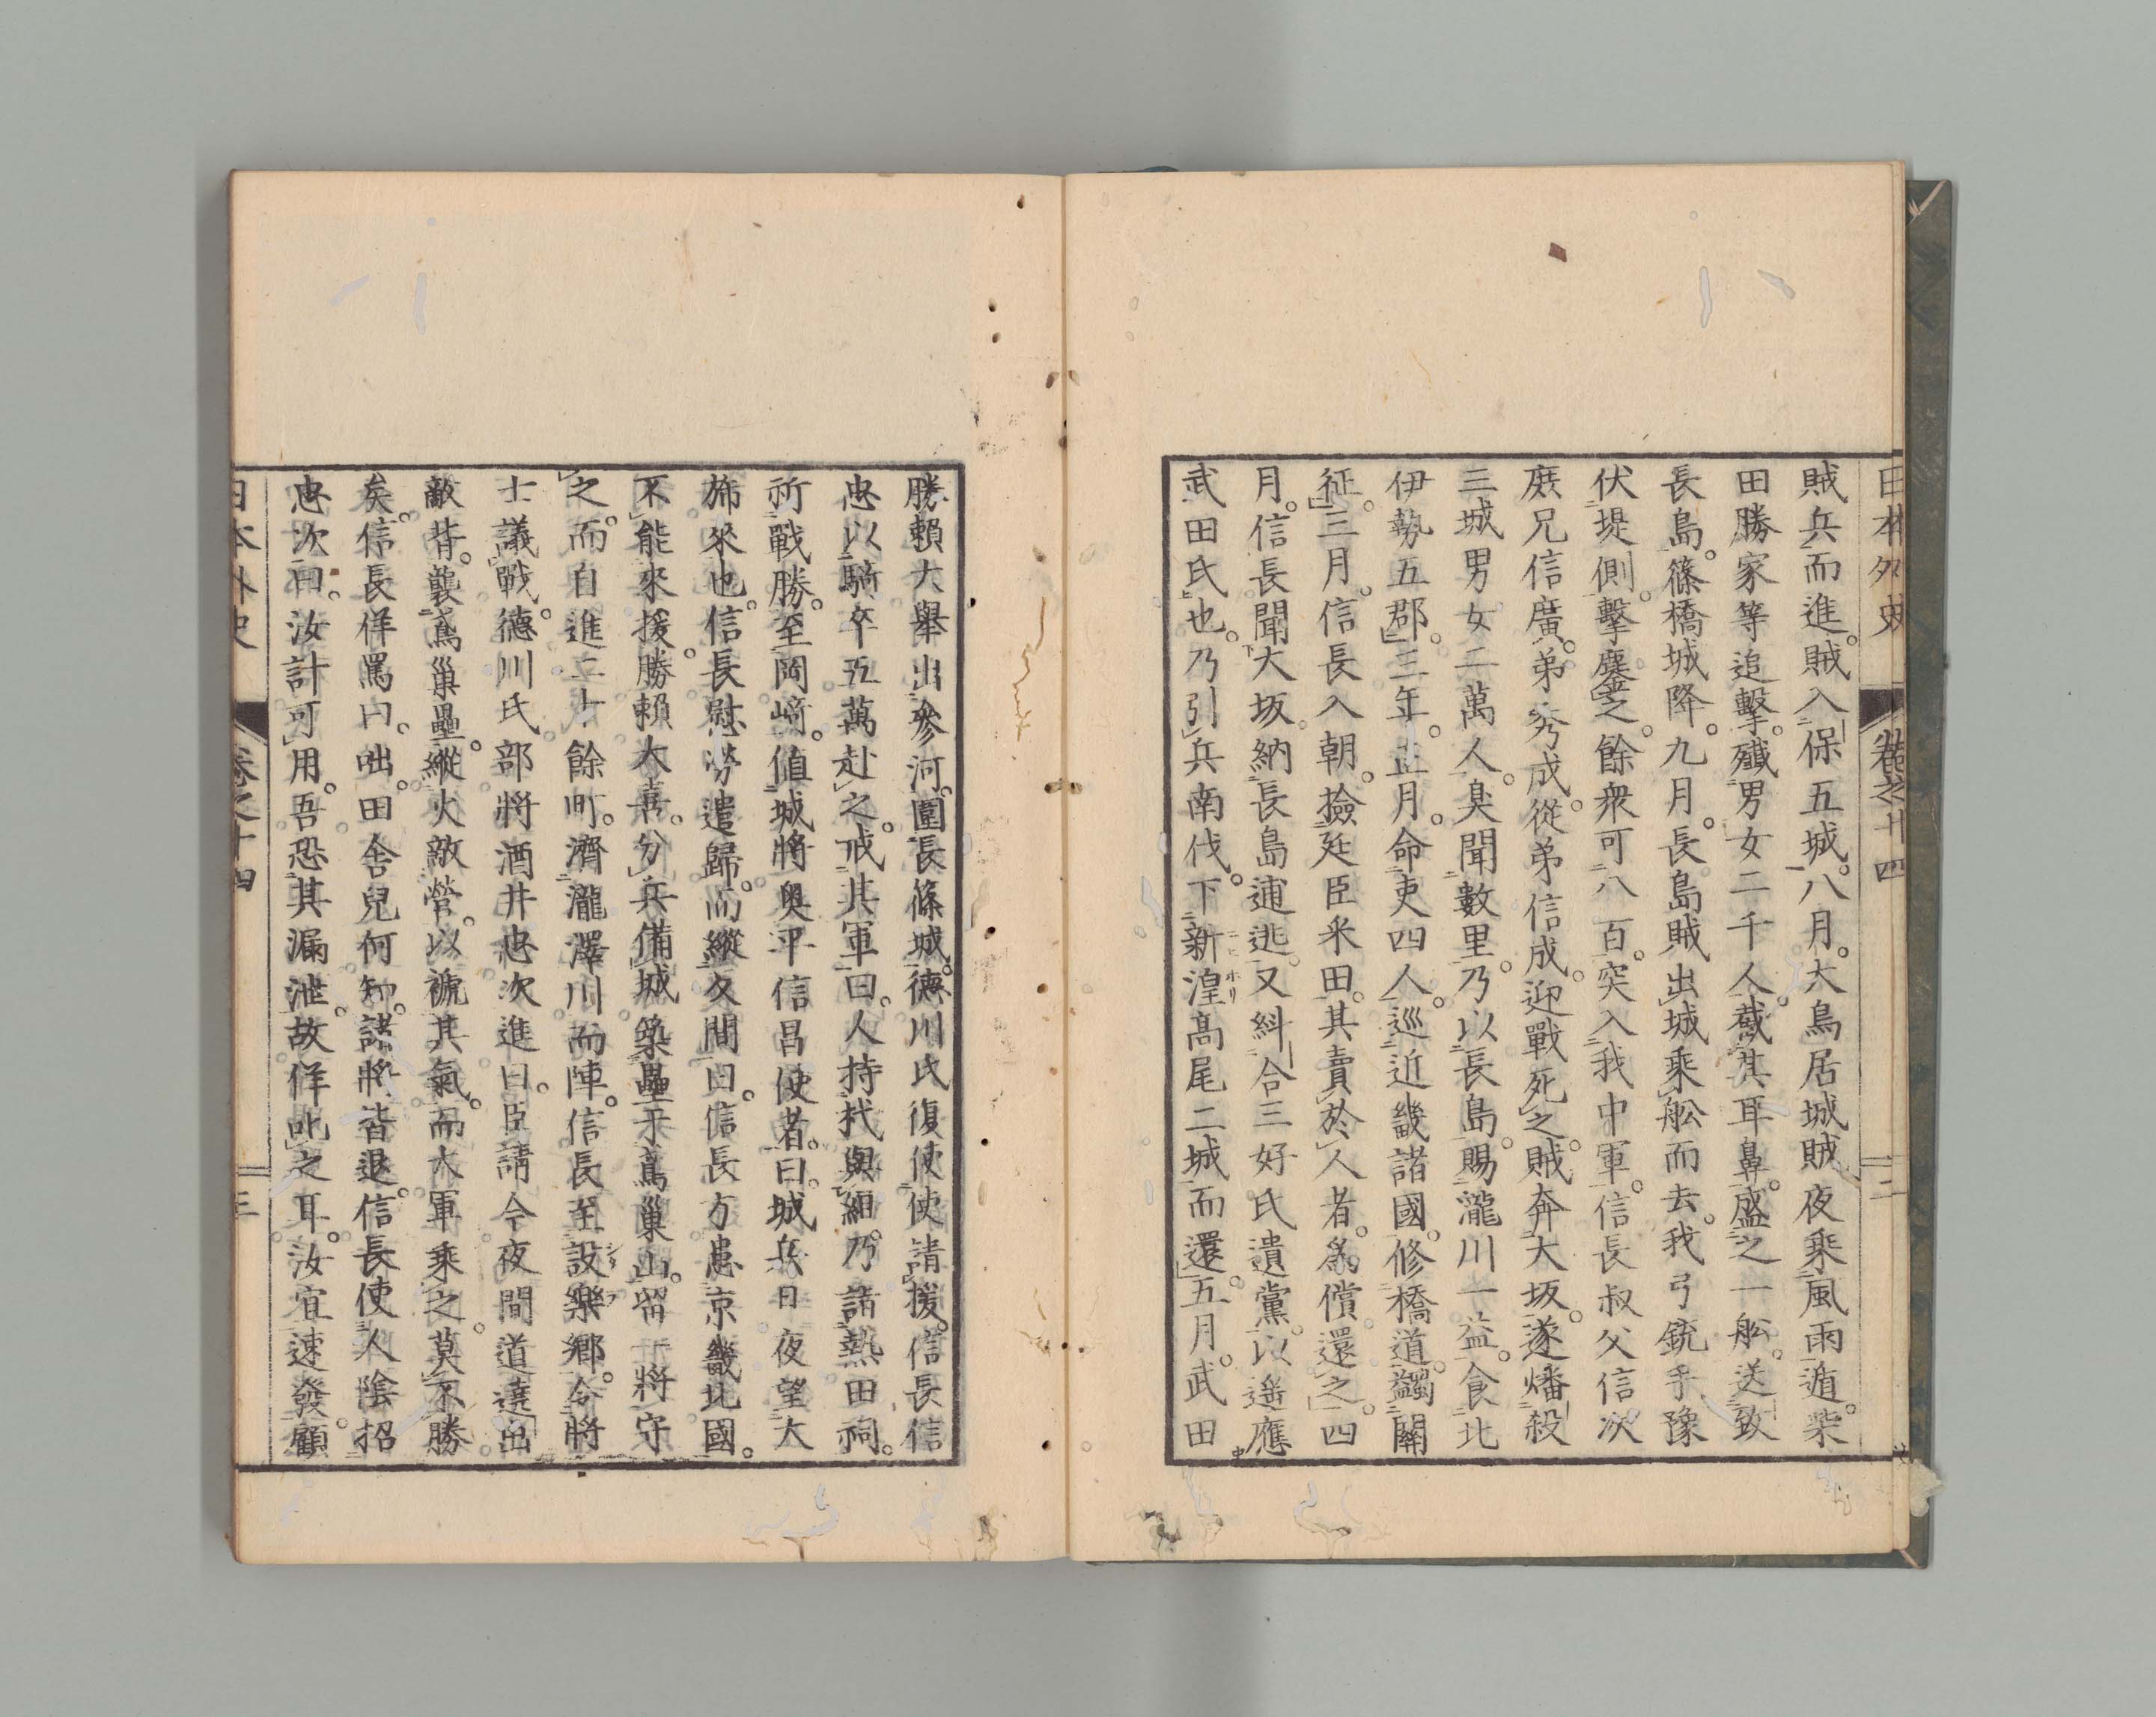 日本外史 卷之十四 二
賊兵而進。賊入保五城。八月。大鳥居城賊夜乘風雨遁。柴
田勝家等追擊。殲男女二千人。截其耳鼻。盛之一舩。送致
長島。篠橋城降。九月。長島賊出城乘舩而去。我弓銃手豫
伏堤側。擊鏖之。餘衆可八百。突入我中軍。信長叔父信次
庶兄信廣。弟秀成。從弟信成。迎戰死之。賊奔大坂。遂燔殺
三城男女二萬人。臭聞數里。乃以長島。賜瀧川一益。食北
伊勢五郡。三年。正月。命吏四人。巡近畿諸國。修橋道。蠲關
征。三月。信長入朝。撿廷臣釆田。其賣於人者。爲償還之。四
月。信長聞大坂。納長島逋逃。又糾合三好氏遺黨。以遥應
武田氏也。乃引兵南伐。下新湟高尾二城而還。五月。武田
勝賴大舉出參河。圍長篠城。德川氏復使使請援。信長信
忠以騎卒五萬赴之。戒其軍曰。人持杙與縆。乃詣熱田祠。
祈戰勝。至岡﨑。値城將奥平信昌使者。曰。城兵日夜望大
旆來也。信長慰勞遣歸。而縱反間曰。信長方患京畿北國。
不能來援。勝賴大喜。分兵備城。築壘于鳶巢山。留一將守
之。而自進二十餘町。濟瀧澤川而陣。信長至設樂鄉。令將
士議戰。德川氏部將酒井忠次進曰。臣請今夜間道遶出
敵背。襲鳶巢壘。縱火敵營。以褫其氣。而大軍乘之。莫不勝
矣。信長佯罵曰。咄。田舍兒何知。諸將皆退。信長使人陰招
忠次曰。汝計可用。吾恐其漏泄。故佯叱之耳。汝宜速發。顧
日本外史 卷之十四 三